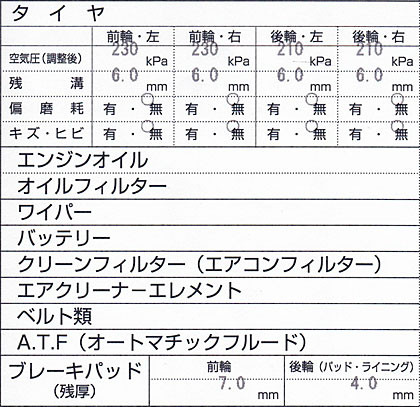 タイヤ
前輪・左 前輪・右 後輪・左 後輪・右
空気圧(調整後) 230 kPa 230 kPa 210 kPa 210 kPa
残溝 6.0 mm 6.0 mm 6.0 mm 6.0 mm
偏磨耗 有・無 有・無 有・無 有・無
キズ・ヒビ 有・無 有・無 有・無 有・無
エンジンオイル
オイルフィルター
ワイパー
バッテリー
クリーンフィルター(エアコンフィルター)
エアクリーナーエレメント
ベルト類
A.T.F(オートマチックフルード)
ブレーキパッド 前輪 後輪(パッド・ライニング)
(残厚) 7.0 mm 4.0 mm